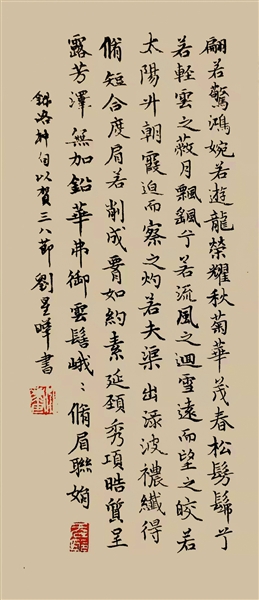 翩若驚鴻婉若遊龍榮耀秋菊華茂春松髣髴兮
若輕雲之蔽月飄颻兮若流風之迴雪遠而望之皎若
太陽升朝霞迫而察之灼若夫渠出渌波襛纖得
脩短合度肩若削成腰如約素延頸秀項皓質呈
露芳澤無加鉛華弗御雲髻峨〻脩眉聯娟
錄洛神句以賀三八節 劉星曄書